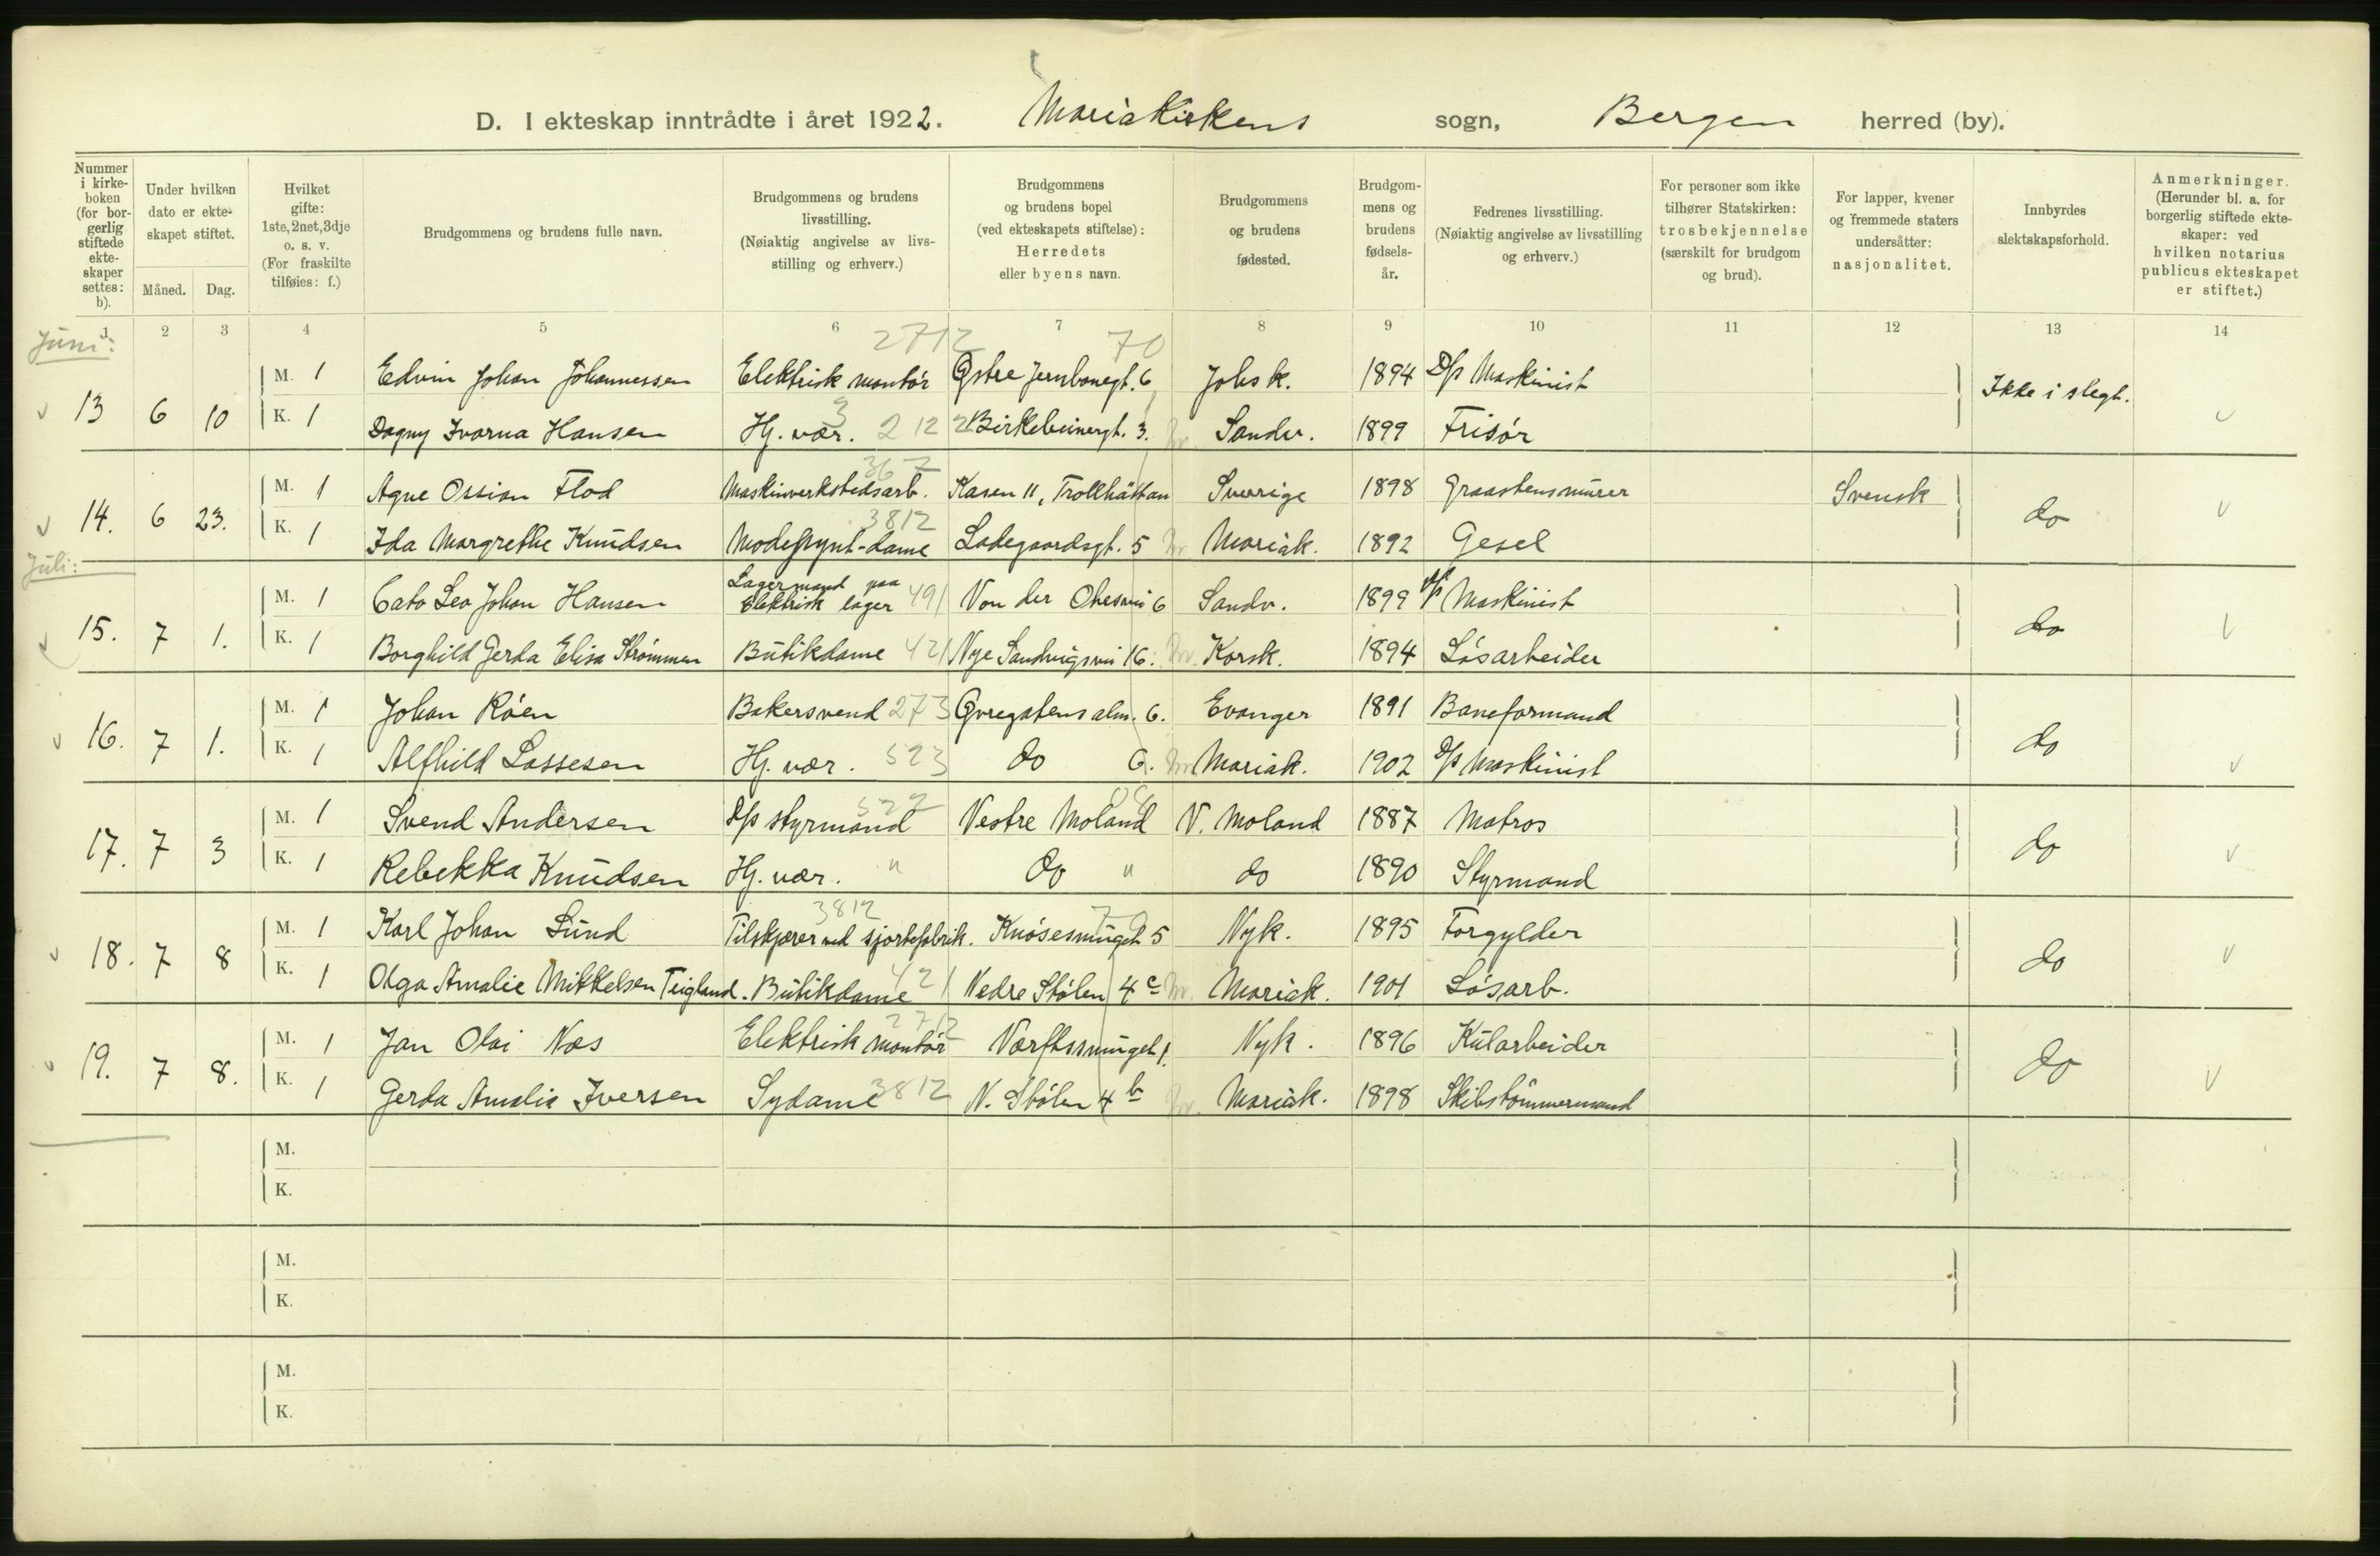 D. I ekteskap inntrådte i året 1922. Mariakirkens sogn, Bergen herred (by).
Nummer i kirke-boken (for bor-gerlig stiftede ekte-skaper settes: b).
Under hvilken dato er ekte-skapet stiftet.
Måned. Dag.
Hvilket gifte: 1ste, 2net, 3dje o. s. v. (For fraskilte tilføies: f.)
Brudgommens og brudens fulle navn.
Brudgommens og brudens livsstilling. (Nøiaktig angivelse av livs-stilling og erhverv.)
Brudgommens og brudens bopel (ved ekteskapets stiftelse): Herredets eller byens navn.
Brudgommens og brudens fødested.
Brudgom-mens og brudens fødsels-år.
Fedrenes livsstilling. (Nøiaktig angivelse av livsstilling og erhverv.)
For personer som ikke tilhører Statskirken: trosbekjennelse (særskilt for brudgom og brud).
For lapper, kvener og fremmede staters undersåtter: nasjonalitet.
Innbyrdes slektskapsforhold.
Anmerkninger. (Herunder bl. a. for borgerlig stiftede ekte-skaper: ved hvilken notarius publicus ekteskapet er stiftet.)
1 2 3 4 5 6 7 8 9 10 11 12 13 14
Juni:
2712 70
M. 1 Edvin Johan Johannessen Elektrisk montör Østre Jernbanegt. 6 Johs k. 1894 D/s Maskinist
13 6 10 Ikke i slegt.
K. 1 Dagny Ivarna Hansen Hj. vær. 212 Birkebeinergt. 3. Sandv. 1899 Frisör
367
M. 1 Agne Ossian Flod Maskinverkstedsarb. Kasen 11, Trollhättan Sverige 1898 Graastensmurer Svensk
14. 6 23. do
3812
K. 1 Ida Margrethe Knudsen Modepynt-dame Ladegaardsgt. 5 Mariak. 1892 Gesel
Juli:
M. 1 Cato Leo Johan Hansen Lagermand paa Elektrisk lager 491 Von der Ohesvei 6 Sandv. 1899 D/s Maskinist
15. 7 1. do
K. 1 Borghild Gerda Elisa Strömmen Butikdame 421 Nye Sandvigsvei 16. Korsk. 1894 Lösarbeider
M. 1 Johan Röen Bakersvend 273 Øvregatens alm. 6. Evanger 1891 Baneformand
16. 7 1. do
K. 1 Alfhild Lassesen Hj. vær. 523 do 6. Mariak. 1902 D/s Maskinist
522
M. 1 Svend Andersen D/s styrmand Vestre Moland V. Moland 1887 Matros
17. 7 3 do
K. 1 Rebekka Knudsen Hj. vær. " do " do 1890 Styrmand
3812 70
M. 1 Karl Johan Lund Tilskjærer ved skjortefabrik. Knösesmuget 5 Nyk. 1895 Forgylder
18. 7 8 do
K. 1 Olga Amalie Mikkelsen Teigland. Butikdame 421 Nedre Stölen 4c Mariak. 1901 Lösarb.
2712
M. 1 Jan Olai Næs Elektrisk montör Værftssmuget 1. Nyk. 1896 Kularbeider
19. 7 8. do
K. 1 Gerda Amalie Iversen Sydame 3812 N. Stölen 4b Mariak. 1898 Skibstömmermand
M.
K.
M.
K.
M.
K.